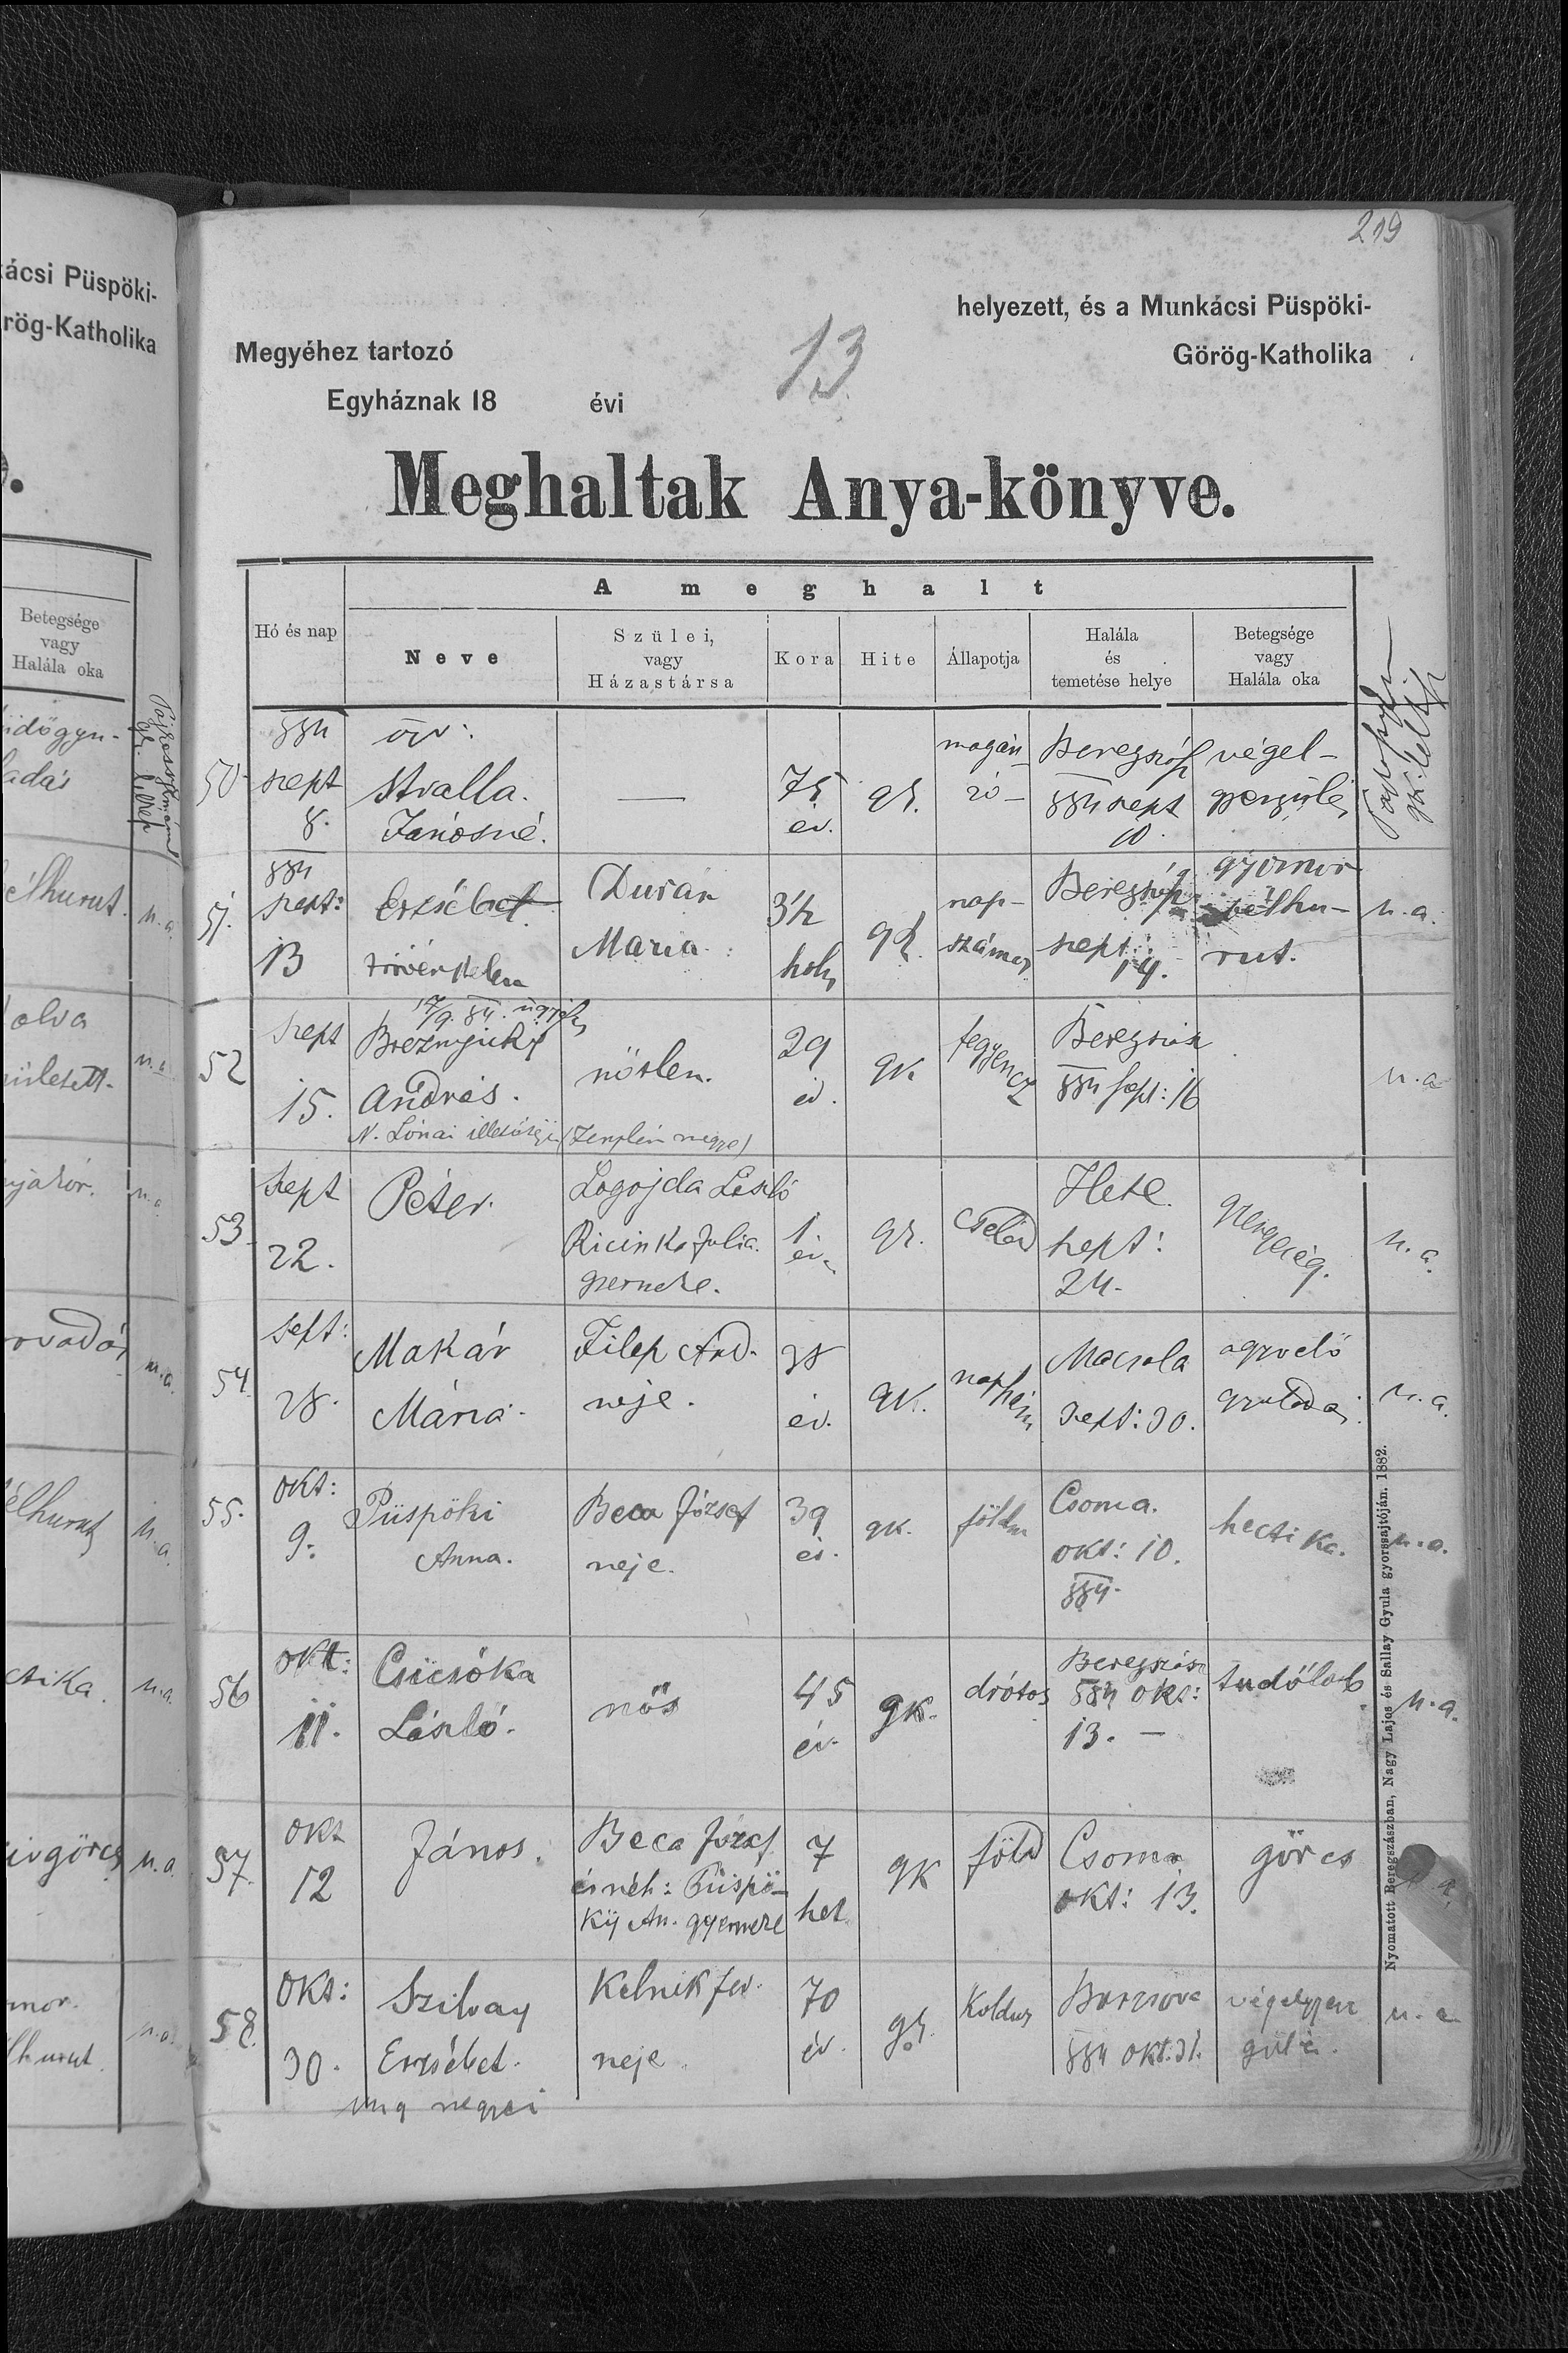 ácsi Püspöki-
rög-Katholika
Betegsége
vagy
Halála oka
219
helyezett, és a Munkácsi Püspöki-
Megyéhez tartozó
13
Görög-Katholika
Egyháznak 18 évi
Meghaltak Anya-könyve.
A meghalt
Hó és nap
Neve
Szülei,
vagy
Házastársa
Kora
Hite
Állapotja
Halála
és
temetése helye
Betegsége
vagy
Halála oka
50 884 szept 8.
özv:
Stvalla
Jánosné.
—
75
év.
gk.
magán
zó-
Beregszász
884 szept
10
végel-
gyengülés
51. 884 szept: 13
Erzsébet
törvénytelen
Durán
Maria
3 1/2
gk.
nap-
számos
Beregszász
szept: 14.
gyomor
bélhu-
rut.
u.a.
52 szept 15.
András.
N. Lónai illetőségű (Zemplén megye)
nőtlen.
29
év.
gk
fegyencz
Beregszász
884 sept: 16
u.a
53. szept 22.
Péter.
Logojda László
Ricinka Julia.
gyermeke.
1.
év.
gk.
cseléd
Hete
szept:
24.
u.a.
54. sept: 28.
Makár
Mária.
Filep And.
neje.
38
év.
gk.
Macsola
szept: 30.
agyvelő
u.a.
55. okt: 9.
Püspöki
Anna.
Beca József
neje.
39
év.
gk.
földm
Csoma.
okt: 10.
884.
hectika.
u.a.
56 okt: 11.
Csicsóka
László.
nős
45
év.
gk.
drótos
Beregszász
884 okt:
13. —
tüdőlob
u.a.
57. okt 12
János.
Beca József
és néh: Püspö-
ky An. gyermeke
7
het
gk
föld
Csoma
okt: 13.
görcs
58. okt: 30.
Szilvay
Erzsébet.
ung megyei
Kelnik
neje
70
év.
gk.
Koldus
Borzsova
884 okt. 31.
végelgyen
gülés.
u.a
Nyomatott Beregszászban, Nagy Lajos és Sallay Gyula gyorssajtóján. 1882.